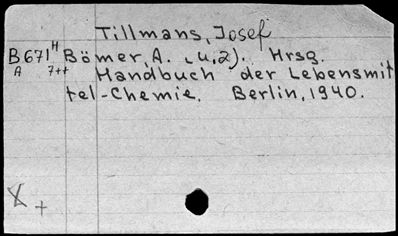 Tillmans, Josef
B671H Bömer, A. (u.a). Hrsg.
A 7++ Handbuch der Lebensmit
tel-Chemie. Berlin, 1940.
+